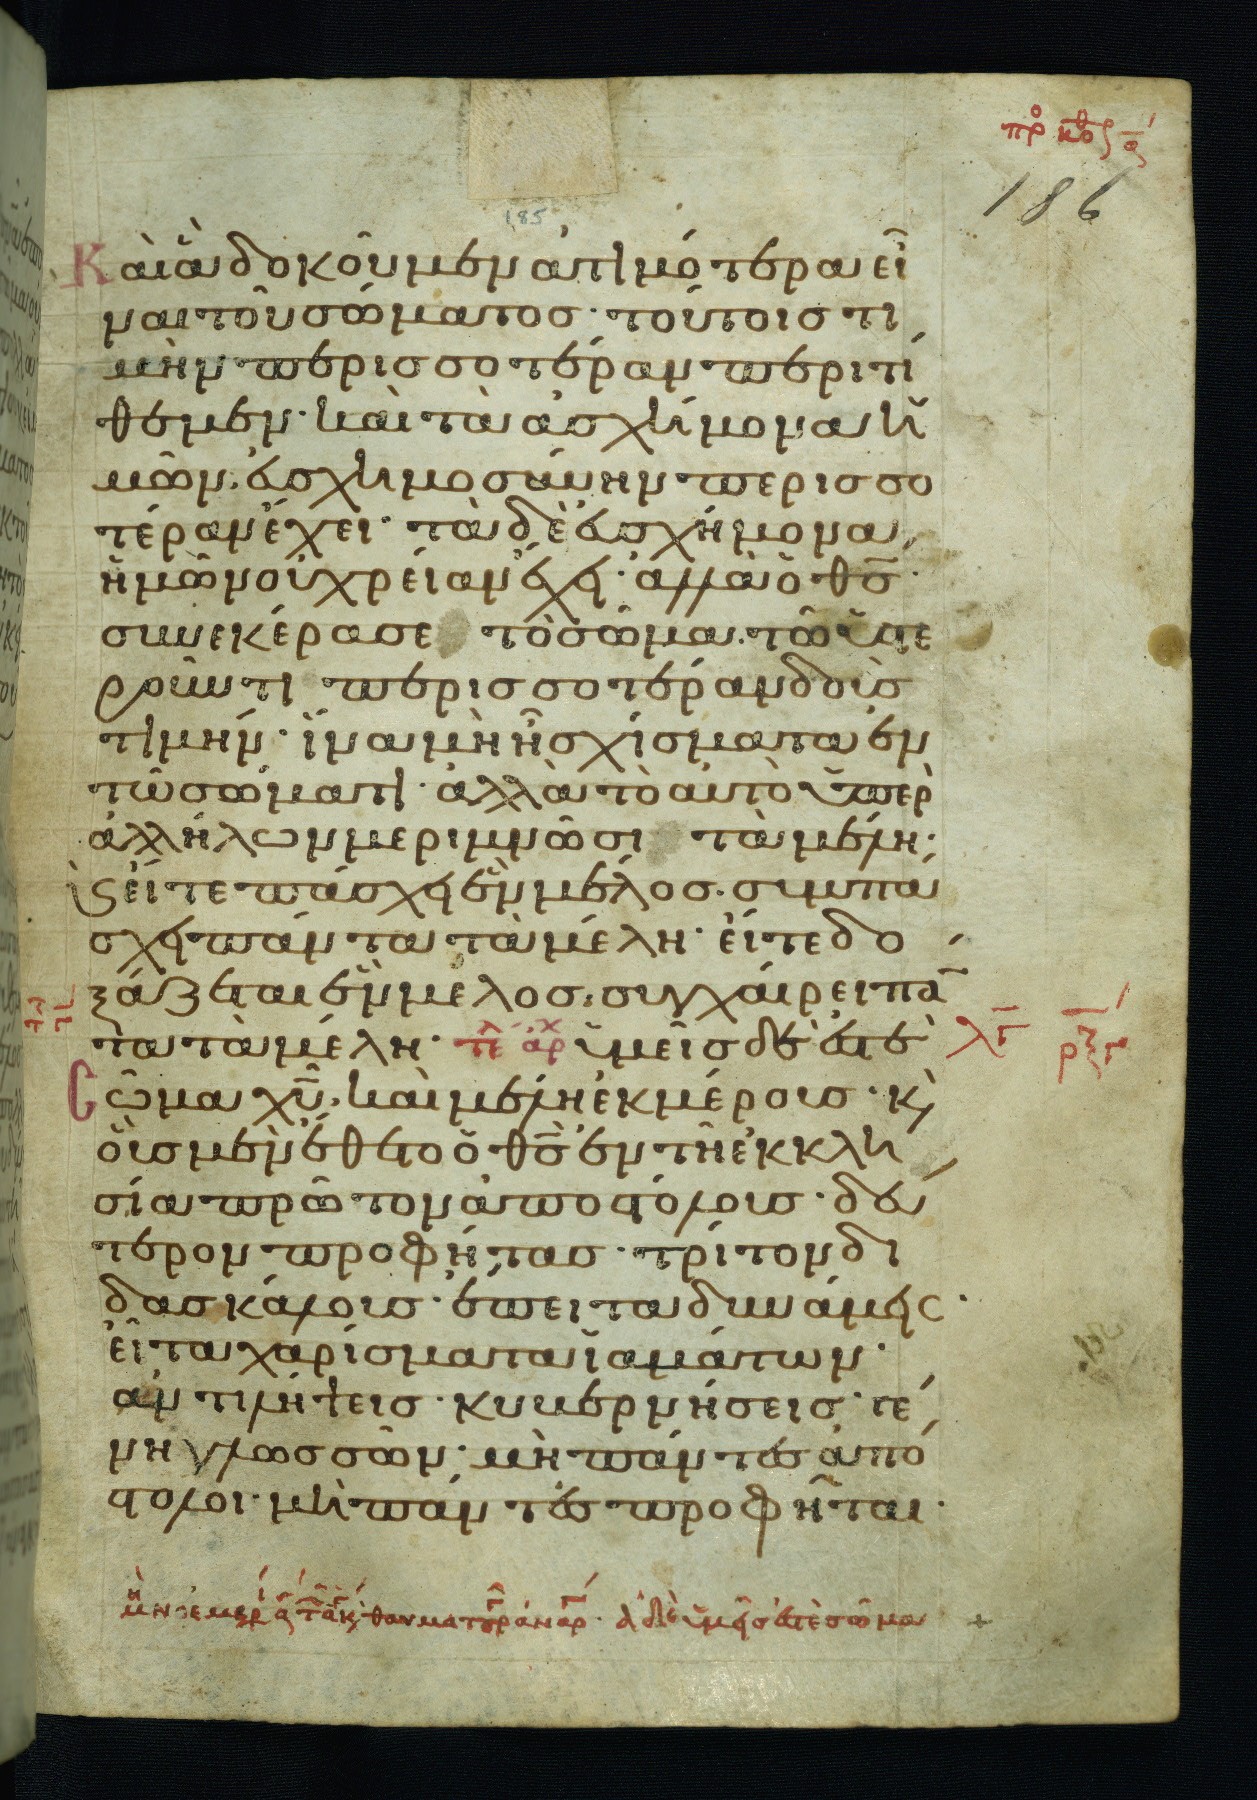 πρ κορ α
186
185
Καὶ ἃ δοκοῦμεν ἀτιμότερα εἶ
ναι τοῦ σώματος· τούτοις τι
μὴν περισσοτέραν περιτί
θεμεν· καὶ τὰ ἀσχήμονα ἡ
μῶν, εὐσχημοσύνην περισσο
τέραν ἔχει· τὰ δὲ εὐσχήμονα
ἡμῶν οὐ χρείαν ἔχει· ἀλλὰ ὁ θς·
συνεκέρασε τὸ σῶμα. τῶ ὑστε
ροῦντι περισσοτέραν δοὺς
τιμήν· ἵνα μὴ ἦ σχίσματα ἐν
τῶ σώματι· ἀλλὰ τὸ αὐτὸ ὑπὲρ
ἀλλήλων μεριμνῶσι τὰ μέλη·
ϗ εἴτε πάσχει ἓν μέλος. συμπά
σχει πάντα τὰ μέλη· εἴτε δο
ξάζεται ἓν μέλος. συγχαίρει πά
τα τὰ μέλη· τε αρχ ὑμεῖς δέ ἐστὲ
Σῶμα χυ, καὶ μέλη ἐκ μέρους· ϗ
οὓς μὲν ἔθετο ὁ θς ἐν τῆ ἐκκλη
σία πρῶτον ἀποστόλους· δεύ
τερον προφήτας· τρίτον δι
δασκάλους· ἔπειτα δυνάμεις·
εἶτα χαρίσματα ἰαμάτων·
ἀντιλήψεις· κυβερνήσεις· γέ
νη γλωσσῶν· μὴ πάντες ἀπό
στολοι· μὴ πάντες προφῆται·
ἀδελ ὑμεῖς ἐστὲ σῶμα